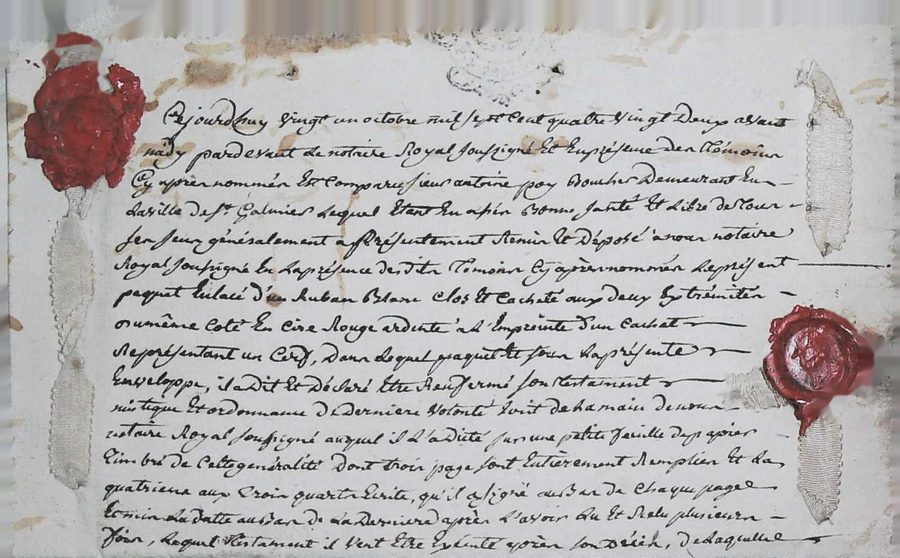 Cejourdhuy vingt un octobre mil sept Cent quatre vingt Deux avant
midy pardevant Le notaire Royal soussigné Et Enprésence des Témoins
Cy après nommés Est Comparu sieur antoine poy Boucher Demeurant En
La ville de St. Galmier Lequel Etant En assés Bonne santé Et Libre de Tous
ses sens généralement a présentement Remis Et Déposé a nous notaire
Royal soussigné En Laprésence desdits Témoins Cy après nommés Le présent
paquet Enlacé d'un Ruban Blanc Clos Et Cacheté aux deux Extrémités
du même Coté En Cire Rouge ardente a L'Empreinte d'un Cachet
Représentant un Cerf, Dans Lequel paquet Et sous Laprésente
Enveloppe, il a Dit Et Déclaré Etre Renfermé son testament
mistique Et ordonnance de Derniere volonté Ecrit de La main de nous
notaire Royal soussigné auquel il L'a Dicté sur une petite feuille de papier
Timbré de Cette généralité Dont trois pages sont Entièrement Remplies Et La
quatrieme aux Trois quarts Ecrite, qu'il a signé au Bas de Chaque page
Et mis La Datte au Bas de La Derniere après L'avoir Lu Et Relu plusieurs
fois, Lequel Testament il Veut Etre Exécuté après son Décès, de Laquelle